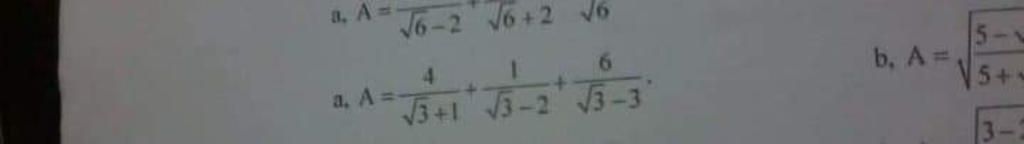 a, A = /(√6 − 2) + /(√6 + 2) /√6
a, A = 4/(√3 + 1) + 1/(√3 − 2) + 6/(√3 − 3).
b, A = √((5 − √)/(5 +
3 −